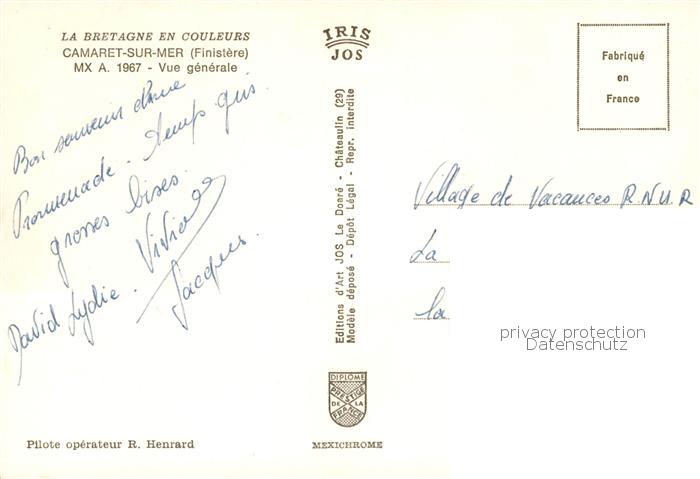 LA BRETAGNE EN COULEURS
CAMARET-SUR-MER (Finistère)
MX A. 1967 - Vue générale
Bon souvenir d'une
Promenade. temps gris.
grosses bises.
David Lydie. Vivia
Jacques.
Pilote opérateur R. Henrard
IRIS
JOS
Editions d'Art JOS Le Doaré - Châteaulin (29)
Modèle déposé - Dépôt Légal - Repr. interdite
DIPLÔME
PRESTIGE
DE LA
FRANCE
MEXICHROME
Fabriqué
en
France
Village de Vacances R.N.U.R
La
la
privacy protection
Datenschutz